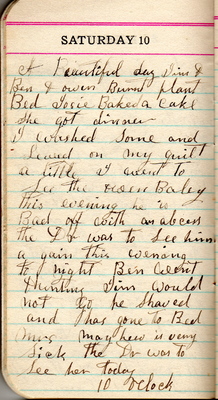 SATURDAY 10
A Beautiful day Jim &
Ben & owen Burnt plant
Bed Josie Baked a cake
She got dinner
I washed Some and
on my quilt
a little I went to
See the owen Baby
this evening he is
Bad off with an abcess
the Dr was to See him
a gain this evening
to night Ben went
Hunting Jim would
not Go he shaved
and has gone to Bed
Mrs mayhew is very
Sick the Dr was to
See her today
10 oclock